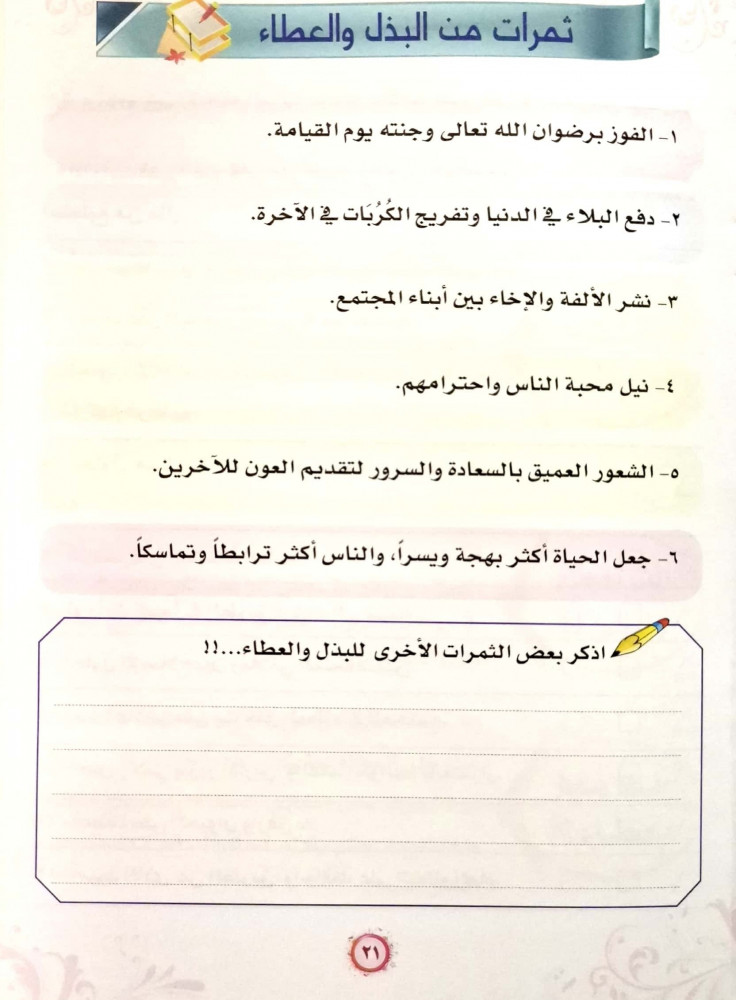 ثمرات من البذل والعطاء
١- الفوز برضوان الله تعالى وجنته يوم القيامة.
٢- دفع البلاء في الدنيا وتفريج الكُرُبَات في الآخرة.
٣- نشر الألفة والإخاء بين أبناء المجتمع.
٤- نيل محبة الناس واحترامهم.
٥- الشعور العميق بالسعادة والسرور لتقديم العون للآخرين.
٦- جعل الحياة أكثر بهجة ويسراً، والناس أكثر ترابطاً وتماسكاً.
اذكر بعض الثمرات الأخرى للبذل والعطاء...!!
٢١